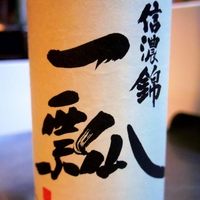 信濃錦
一瓢